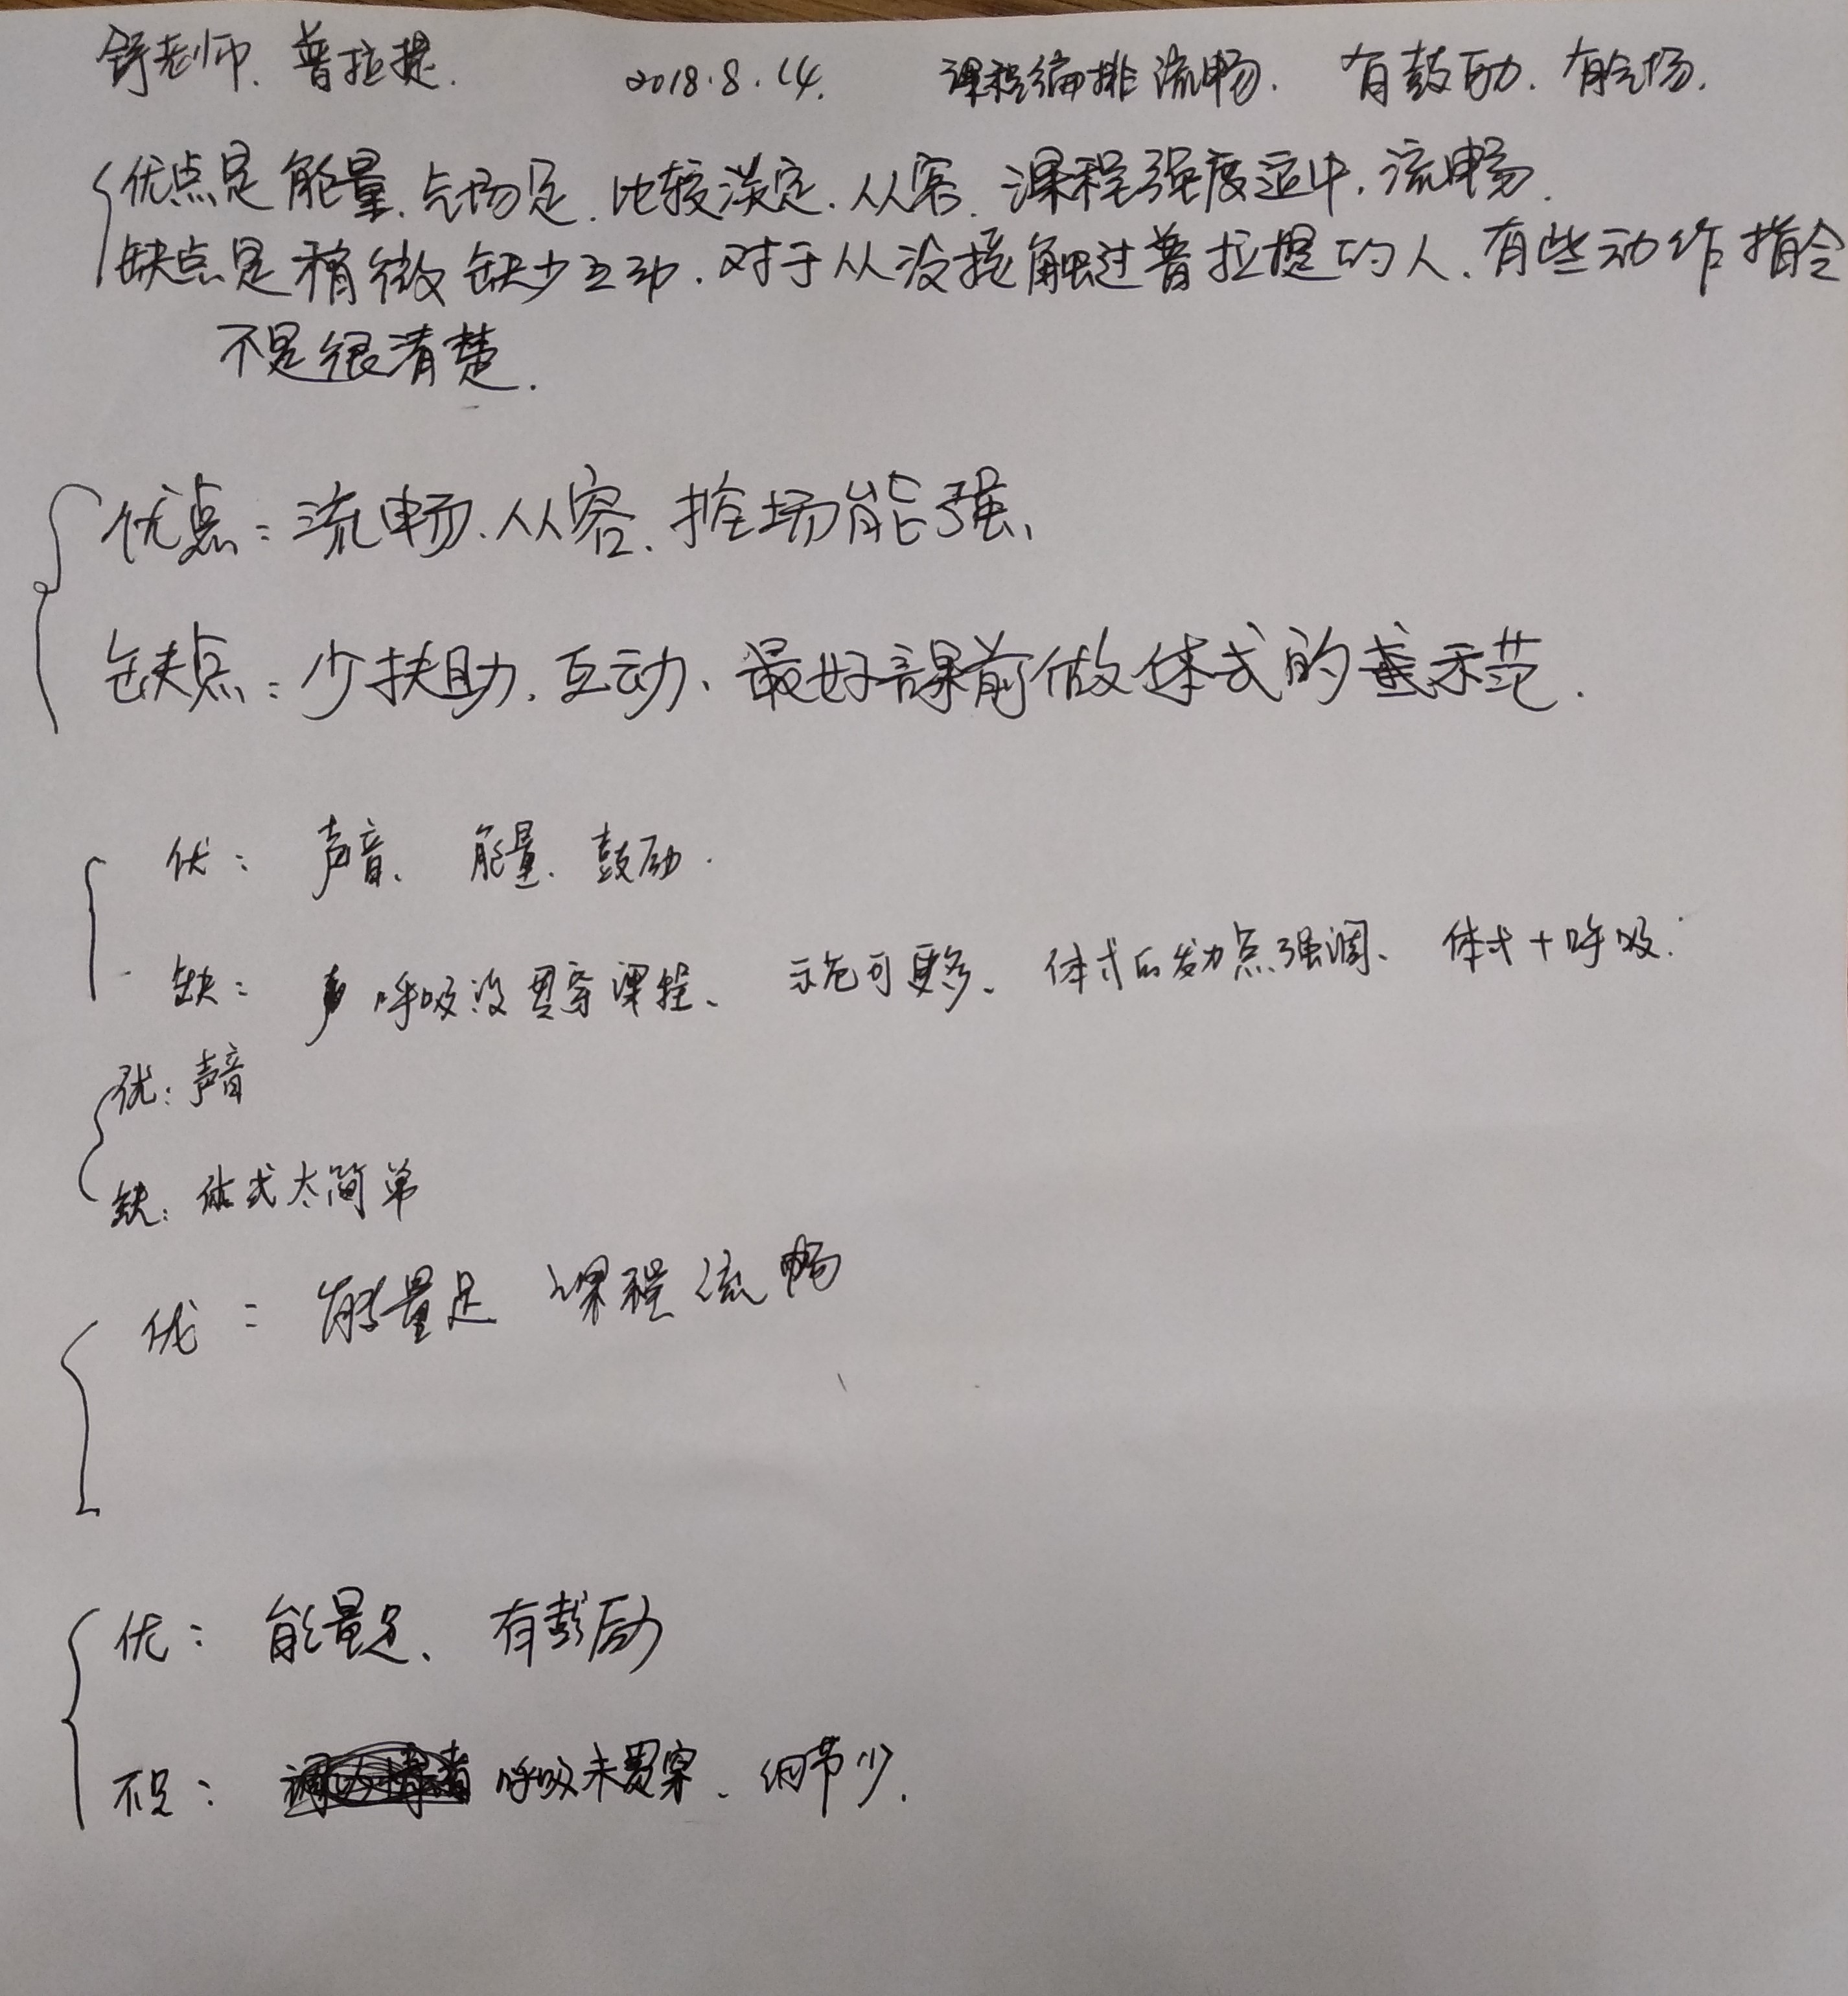 舒老师、普拉提. 2018.8.14. 课程编排流畅. 有鼓励. 有气场.
优点是能量、气场足. 比较淡定. 从容. 课程强度适中, 流畅.
缺点是稍微缺少互动. 对于从没接触过普拉提的人. 有些动作指令
不是很清楚.
优点: 流畅. 从容. 控场能强、
缺点: 少扶助. 互动、最好课前做体式的示范.
优: 声音、能量. 鼓励.
缺: 呼吸没贯穿课程、示范可更多、体式后发力点强调、体式+呼吸.
优: 声音
缺: 体式太简单
优: 能量足 课程流畅
优: 能量足、有鼓励
不足: 呼吸未贯穿、细节少.